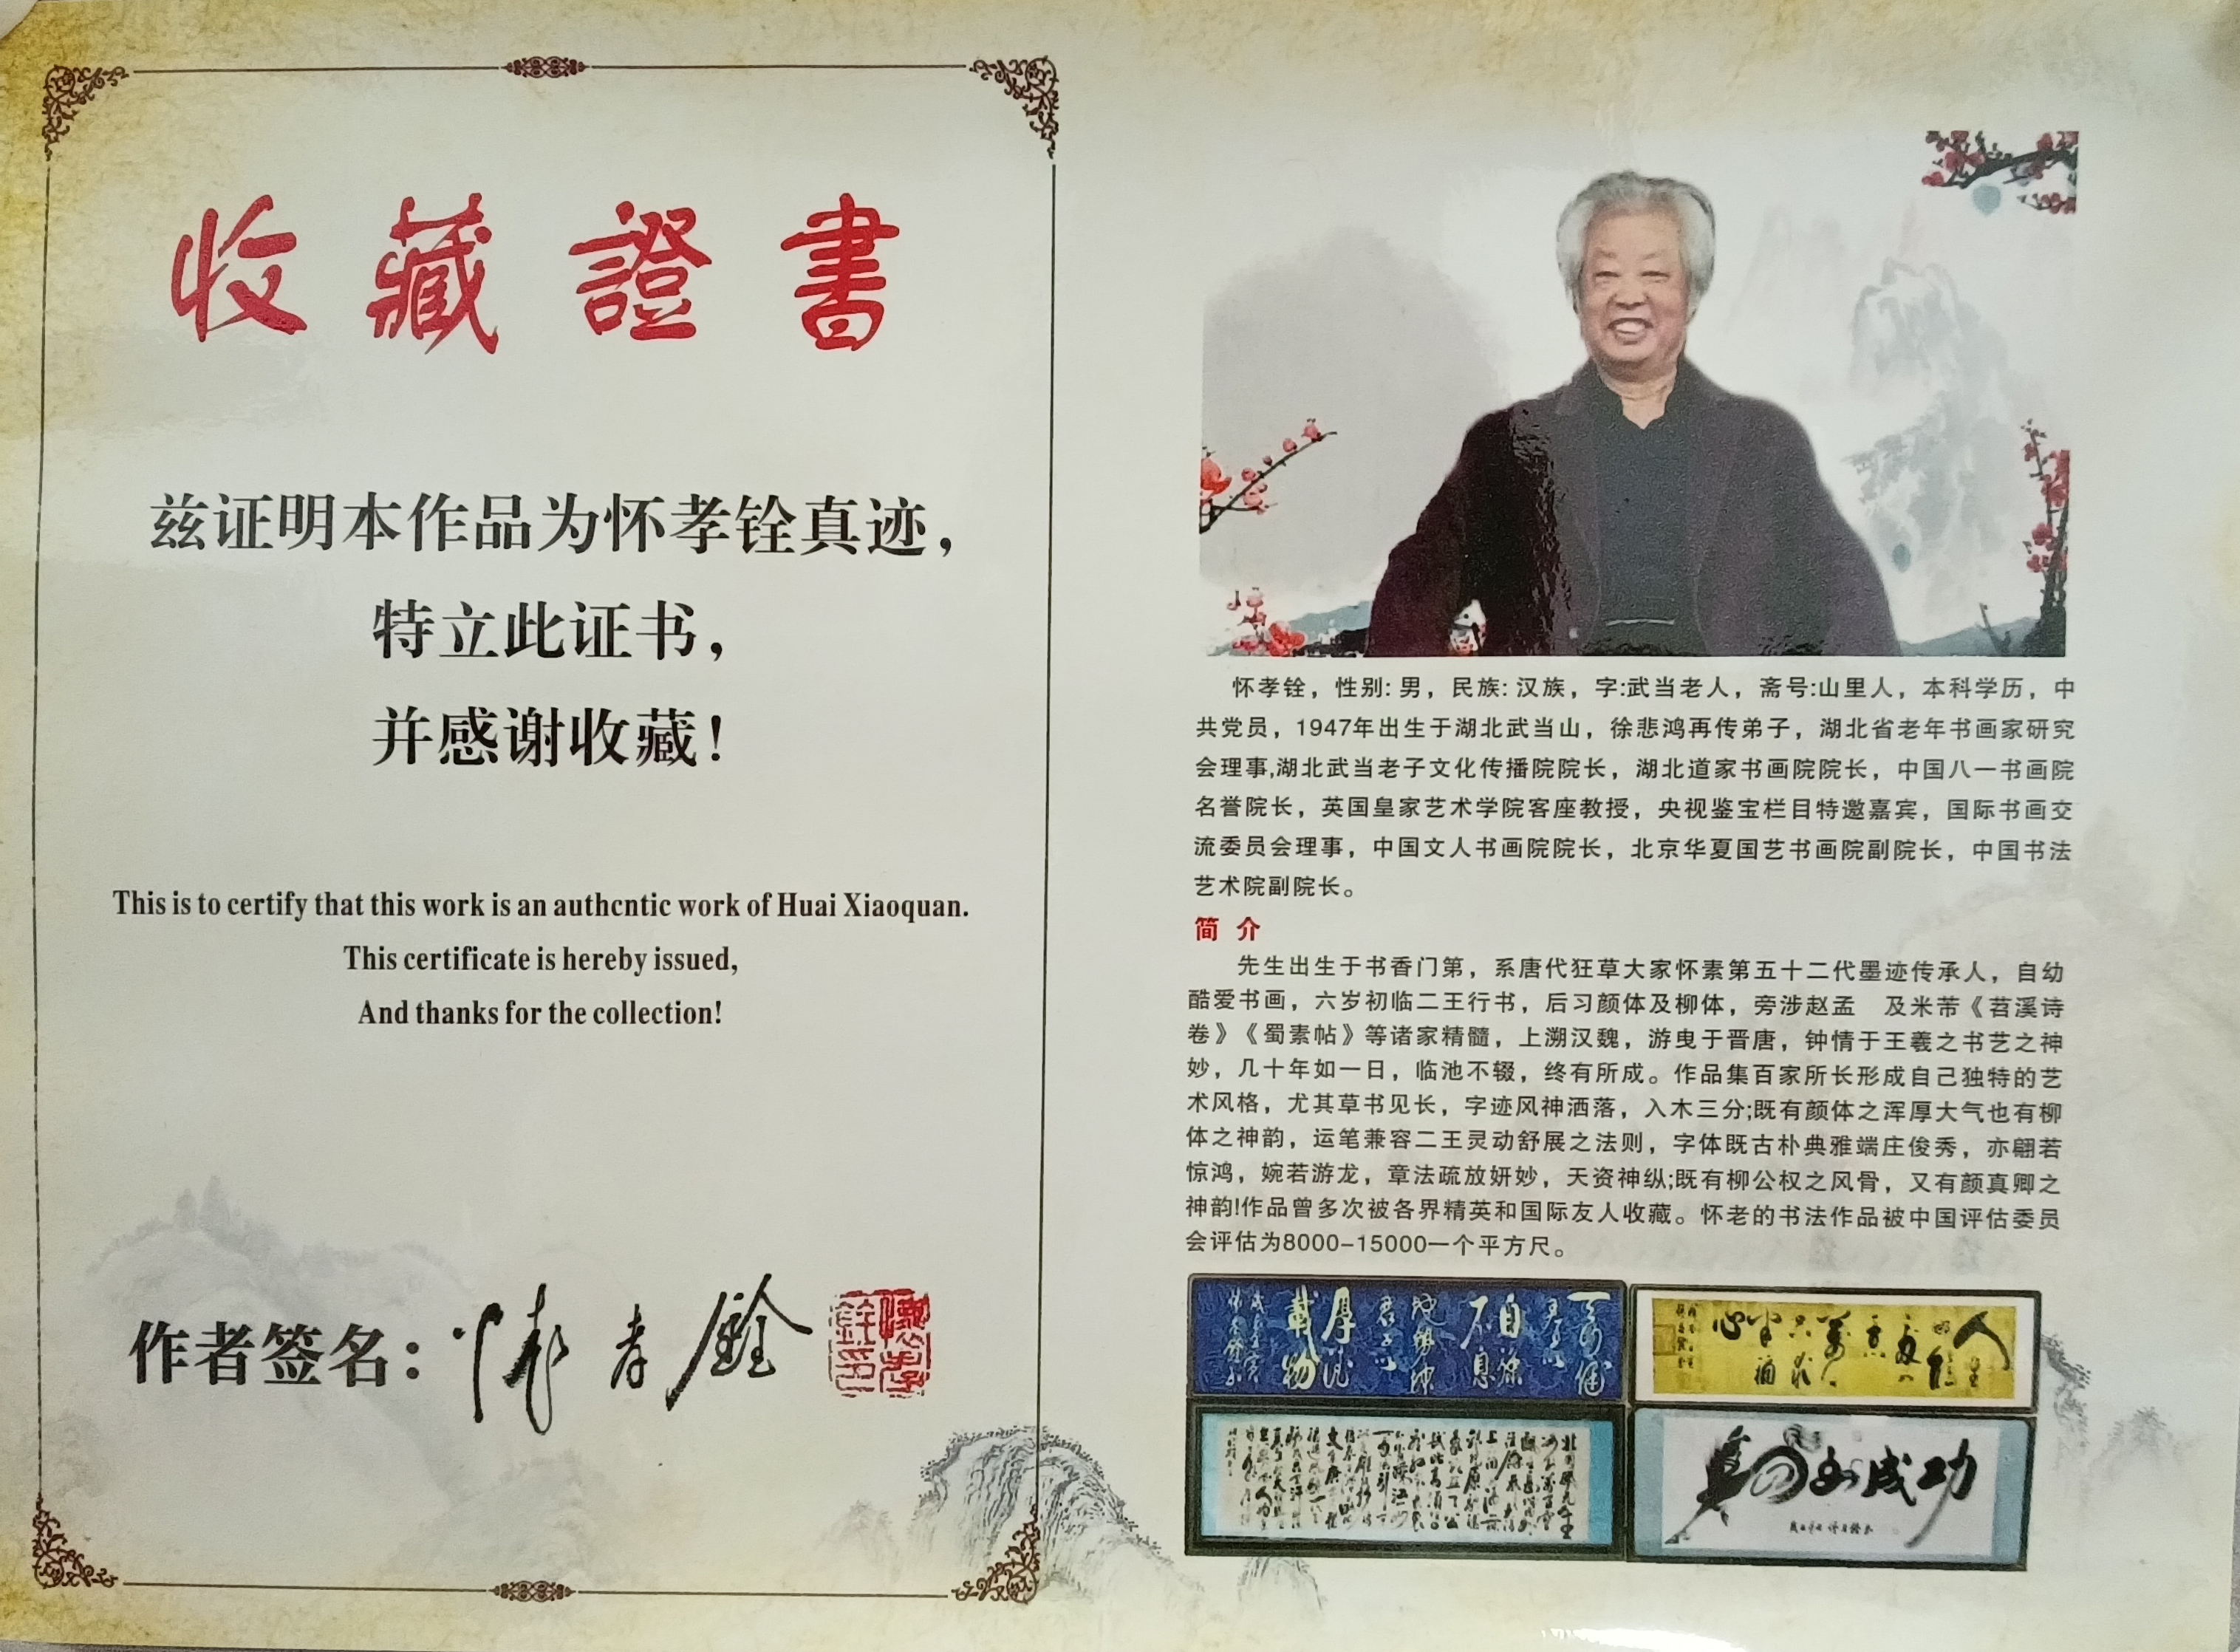 收藏證書
兹证明本作品为怀孝铨真迹，
特立此证书，
并感谢收藏！
This is to certify that this work is an authcntic work of Huai Xiaoquan.
This certificate is hereby issued,
And thanks for the collection!
作者签名：怀孝銓
怀孝铨，性别: 男，民族: 汉族，字:武当老人，斋号:山里人，本科学历，中
共党员，1947年出生于湖北武当山，徐悲鸿再传弟子，湖北省老年书画家研究
会理事,湖北武当老子文化传播院院长，湖北道家书画院院长，中国八一书画院
名誉院长，英国皇家艺术学院客座教授，央视鉴宝栏目特邀嘉宾，国际书画交
流委员会理事，中国文人书画院院长，北京华夏国艺书画院副院长，中国书法
艺术院副院长。
简 介
先生出生于书香门第，系唐代狂草大家怀素第五十二代墨迹传承人，自幼
酷爱书画，六岁初临二王行书，后习颜体及柳体，旁涉赵孟 及米芾《苕溪诗
卷》《蜀素帖》等诸家精髓，上溯汉魏，游曳于晋唐，钟情于王羲之书艺之神
妙，几十年如一日，临池不辍，终有所成。作品集百家所长形成自己独特的艺
术风格，尤其草书见长，字迹风神洒落，入木三分;既有颜体之浑厚大气也有柳
体之神韵，运笔兼容二王灵动舒展之法则，字体既古朴典雅端庄俊秀，亦翩若
惊鸿，婉若游龙，章法疏放妍妙，天资神纵;既有柳公权之风骨，又有颜真卿之
神韵!作品曾多次被各界精英和国际友人收藏。怀老的书法作品被中国评估委员
会评估为8000-15000一个平方尺。